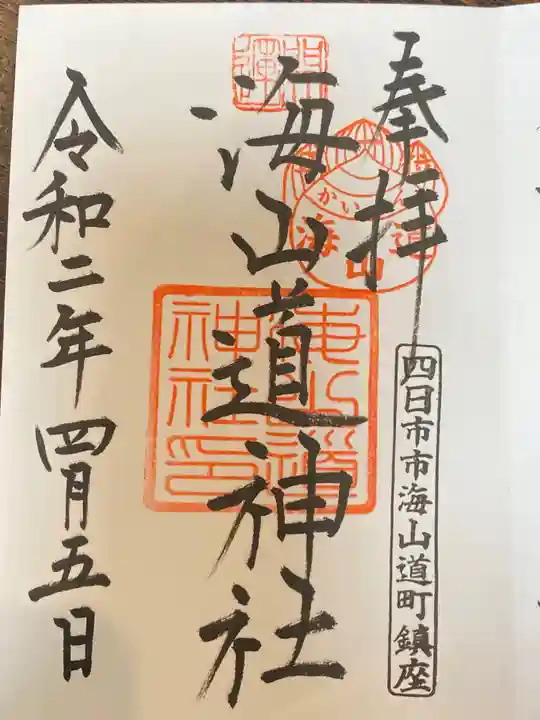 奉拝
かい
海山道
四日市市海山道町鎮座
開運
海山道神社
海山道神社印
令和二年四月五日